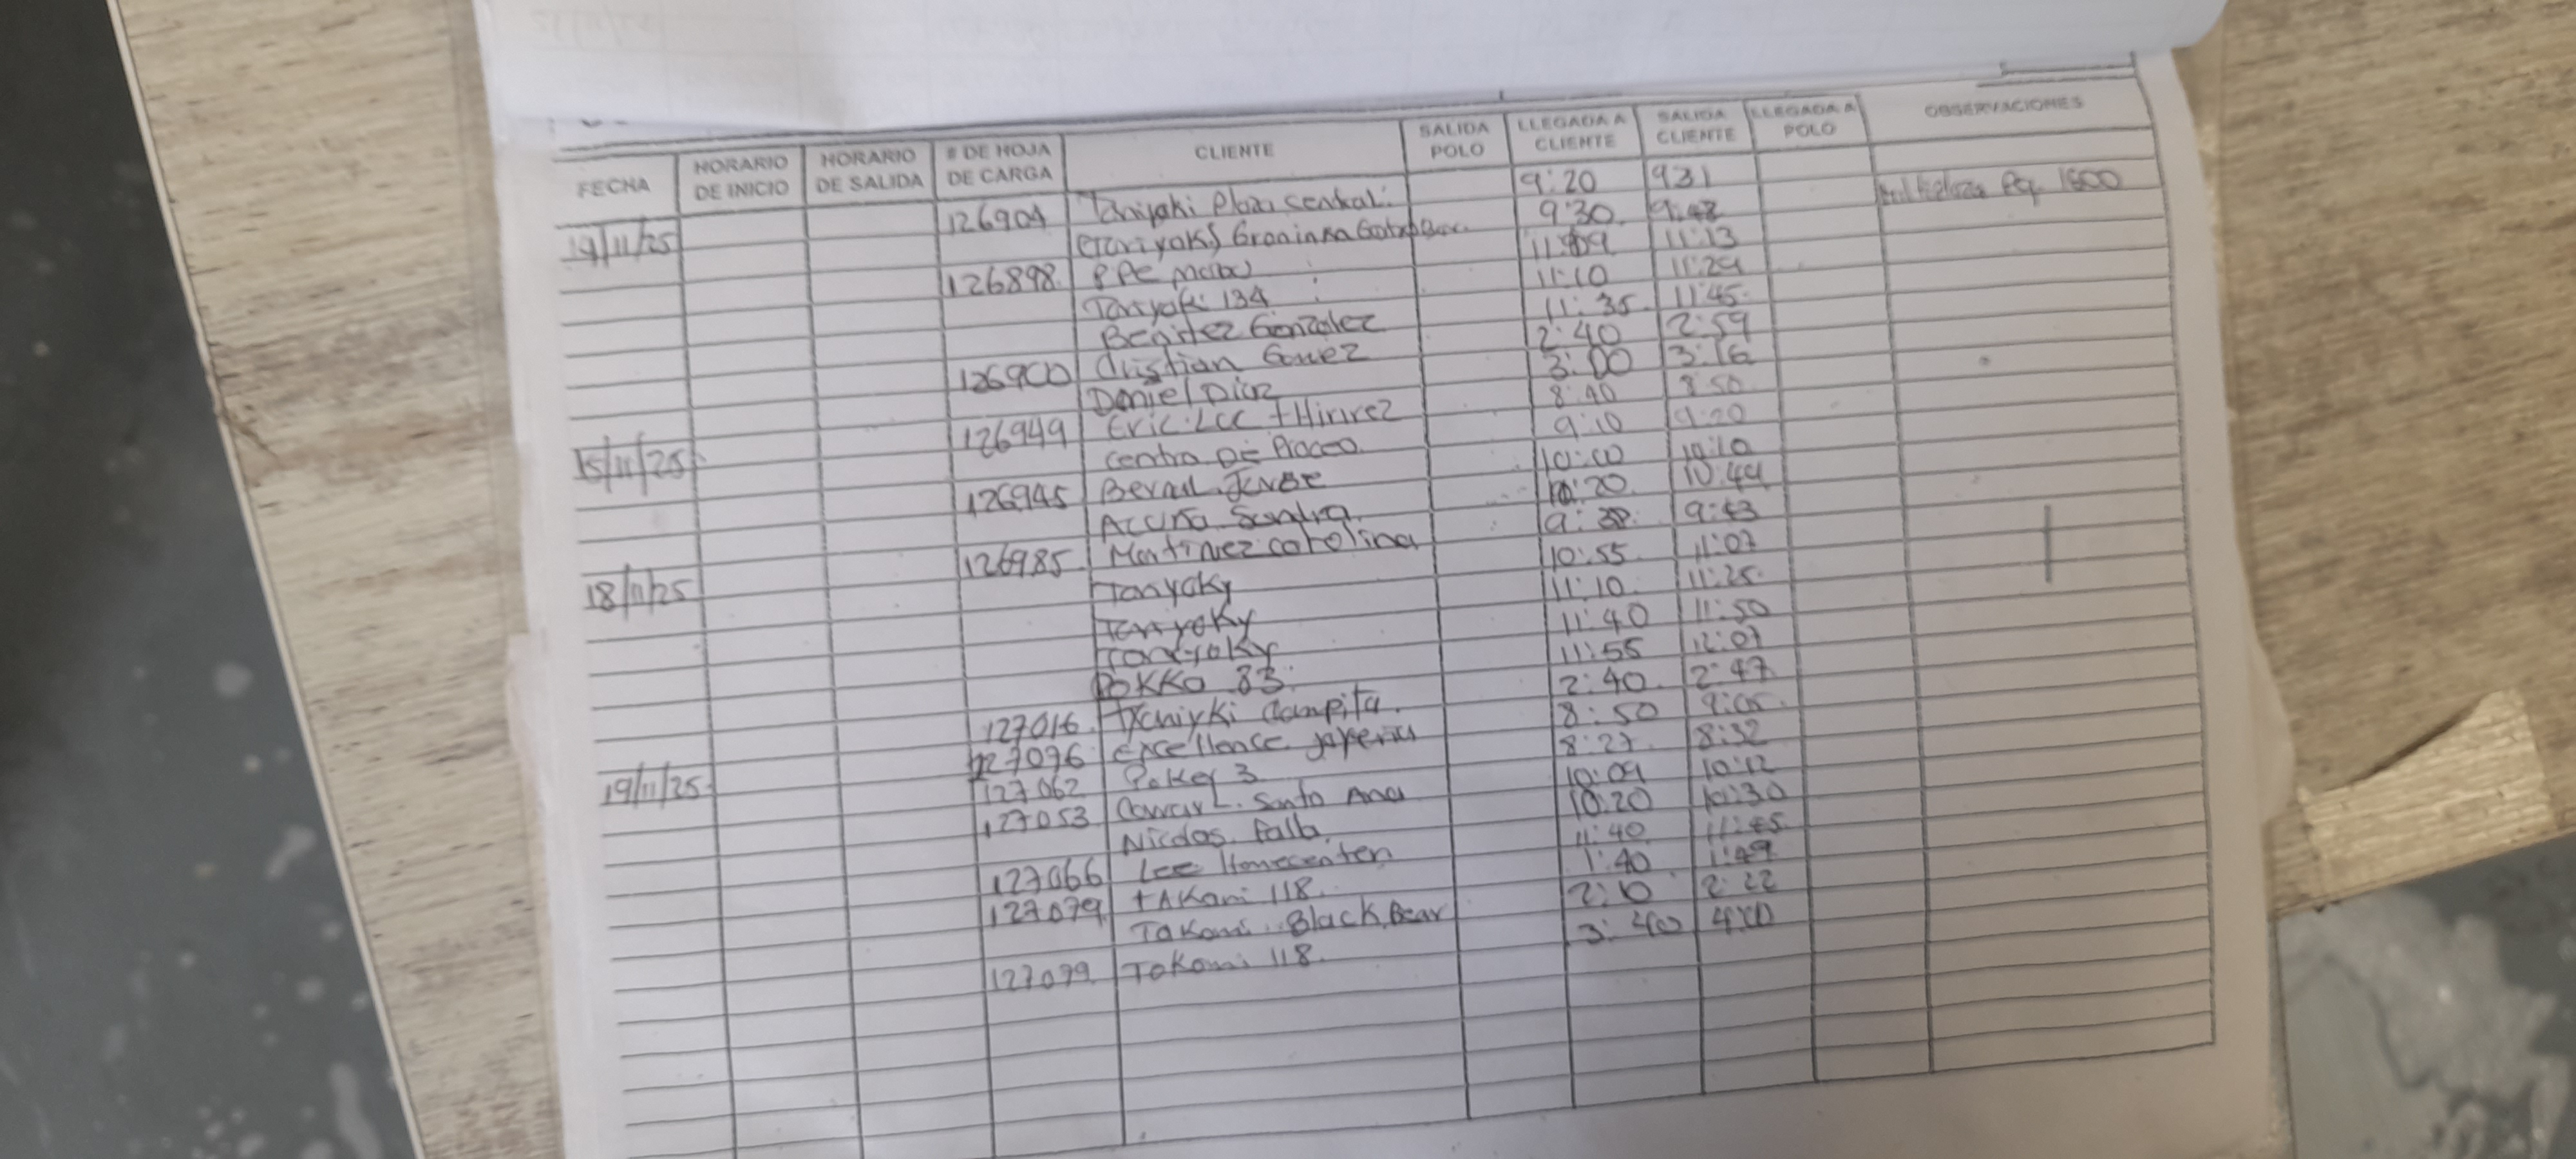 FECHA HORARIO DE INICIO HORARIO DE SALIDA # DE HOJA DE CARGA CLIENTE SALIDA POLO LLEGADA A CLIENTE SALIDA CLIENTE LLEGADA A POLO OBSERVACIONES
19/11/25 126904 Taniyaki Plaza sentral. 9:20 931 Pq. 1500
9:30. 9:48
126898. PPe 11:09 11:13
Tanyaki 134 11:10 11:29
Benitez Gonzalez 11:35. 11:45.
126900 Cristian Gomez 2:40 2:59
Daniel Diaz 3:00 3:16
15/11/25 126949 Eric. Lcc 8:40 8:50
Centro De 9:10 9:20
126945 10:00 10:10
Acuña Sandra. 10:20. 10:44
18/11/25 126985 Martinez carolina 9: 9:43
Tanyaky 10:55. 11:07
Tanyoky 11:10. 11:25.
Tanyoky 11:40 11:50
POKKO 83. 11:55 12:07
127016. campita. 2:40. 2:47
127076 excellence 8:50 9:05.
19/11/25. 127062 Pokey 3 8:27. 8:32
127053 L. Santo Ana 10:09 10:12
Nicolas Falb. 10:20 10:30
127066 Lee Homecenter 11:40 11:45
127079 tAKami 118. 1:40 1:49
Takami Black Bear 2:10 2:22
127099. Takami 118. 3:40 4:00